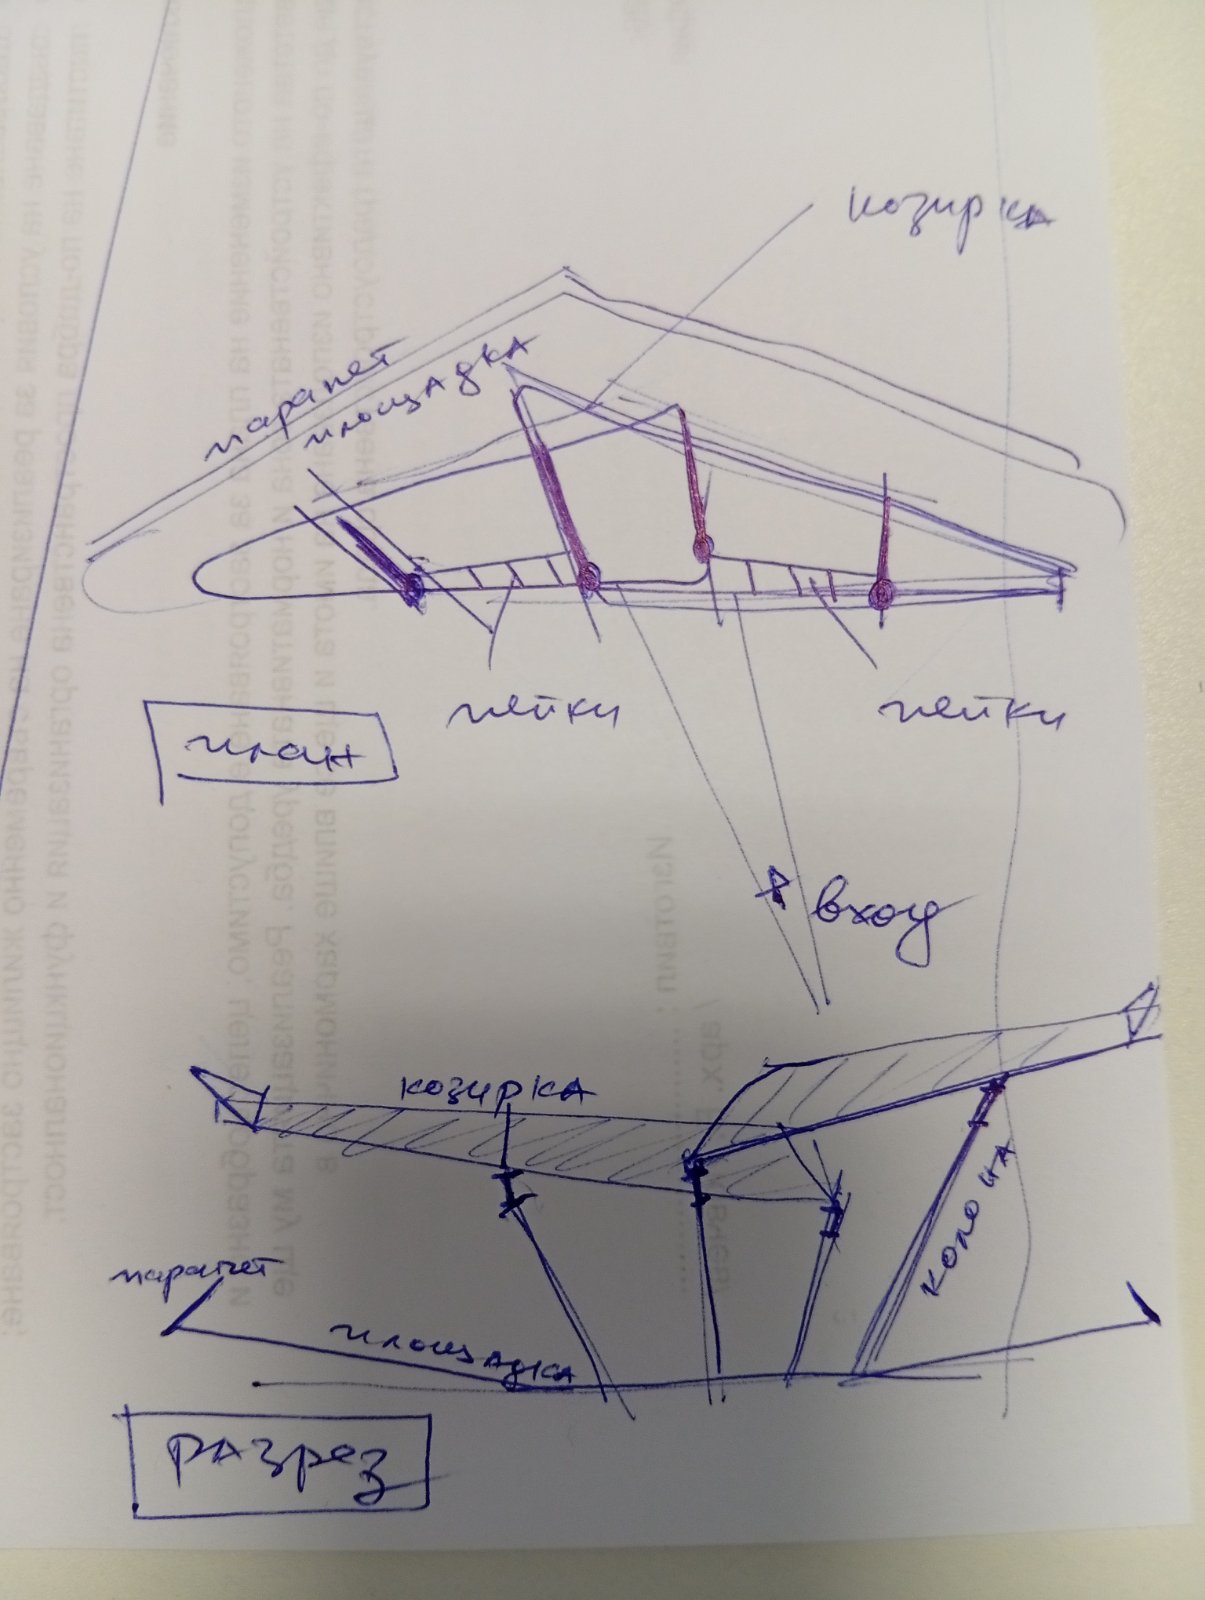 козирка
парапет
площадка
пейки
пейки
план
вход
козирка
колона
парапет
площадка
разрез